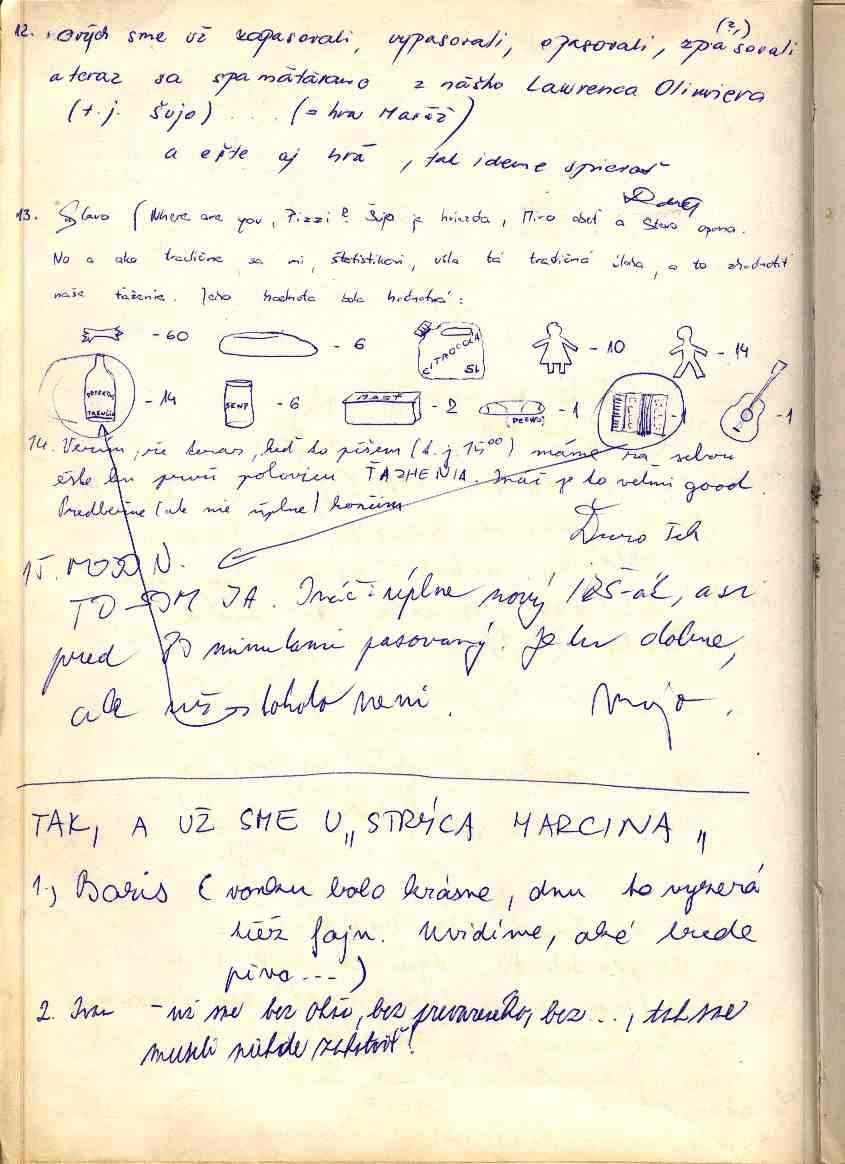 12. ových sme už zapasovali, vypasovali, opasovali, zpasovali (?,)
a teraz sa spamätávame z nášho Lawrenca Oliwiera
(t.j. Šujo) .... (= hru Maráž)
a ešte aj hrá, tak ideme spievať
13. Slavo (Where are you, Pizzi? Šujo je hviezda, Miro obeť a Slavo opona.
No a ako tradične sa mi, štatistikovi, ušla tá tradičná úloha, a to zhodnotiť
naše ťaženie. Jeho hodnota bola hodnotná:
- 60
- 6
CITROCOLA
5L
- 10
- 14
TRENČÍN
- 14
SENF
- 6
MASŤ
- 2
- 1
- 1
- 1
14. Verím, že teraz, keď to píšem (t.j. 15⁰⁰) máme za sebou
ešte len prvú polovicu ŤAZHENIA. Ináč je to veľmi good.
Predbežne (ale nie úplne) končím
Ďuro
15. MOJO N.
TO SOM JA. Ináč úplne nový IŽŠ-ák, asi
pred 30 minutami pasovaný. Je tu dobre,
ale už tohoto není. Mojo.
TAK, A UŽ SME U „STRÝCA MARCINA„
1., Boris (vonku bolo krásne, dnu to vyzerá
tiež fajn. Uvidíme, aké bude
pivo...)
2. Ivan - už sme bez ohňa, bez, bez ..., tak sme
museli niekde zakotviť!